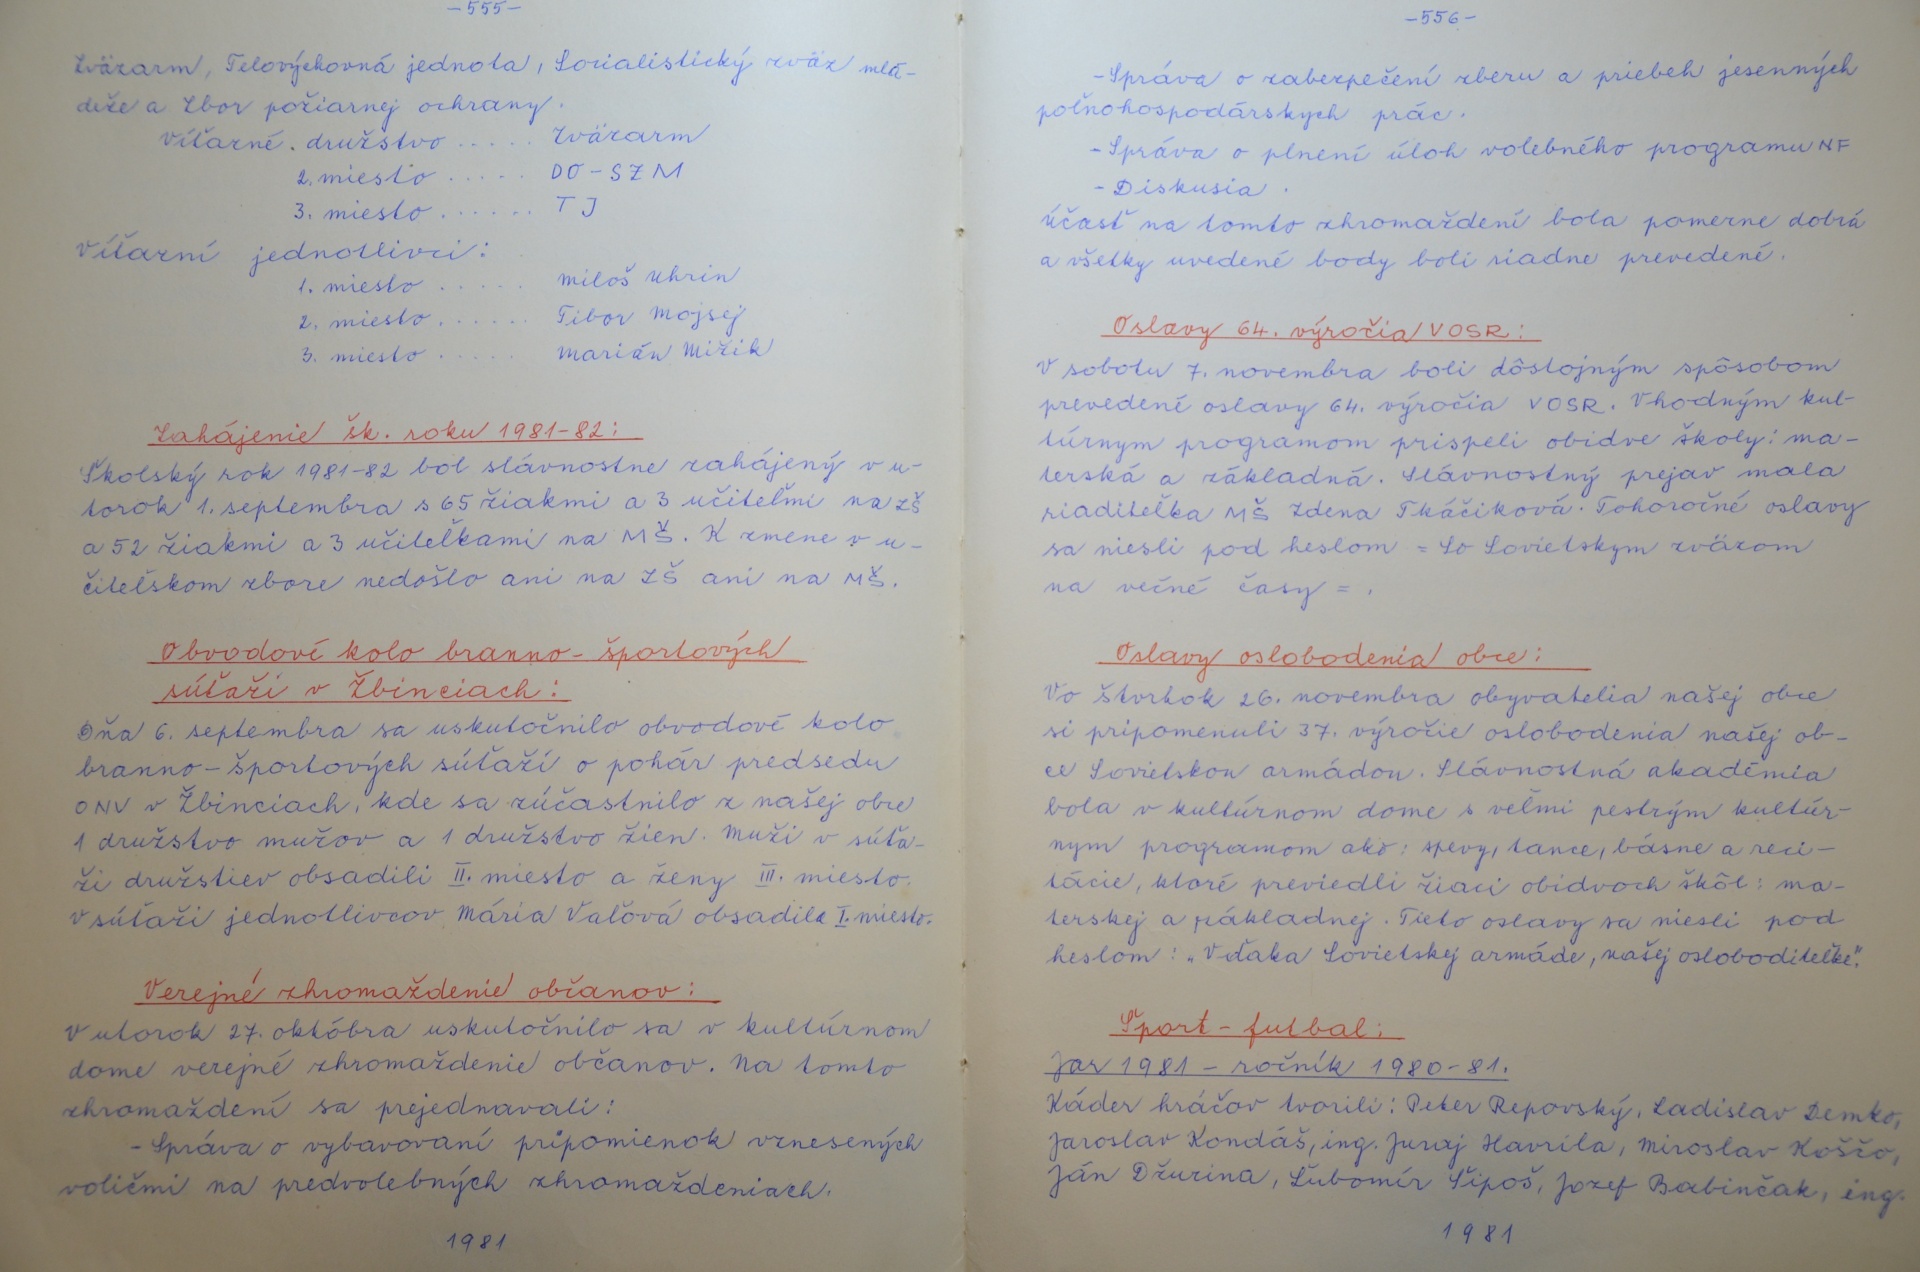 -555-
Zväzarm, Telovýchovná jednota, Socialistický zväz mlá-
deže a Zbor požiarnej ochrany.
Víťazné družstvo ..... Zväzarm
2. miesto ..... DO-SZM
3. miesto ...... TJ
Víťazní jednotlivci:
1. miesto ..... Miloš Uhrin
2. miesto ...... Tibor Mojsej
3. miesto ..... Marián Mižik
Zahájenie šk. roku 1981-82:
Školský rok 1981-82 bol slávnostne zahájený v u-
torok 1. septembra s 65 žiakmi a 3 učiteľmi na ZŠ
a 52 žiakmi a 3 učiteľkami na MŠ. K zmene v u-
čiteľskom zbore nedošlo ani na ZŠ ani na MŠ.
Obvodové kolo branno-športových
súťaží v Žbinciach:
Dňa 6. septembra sa uskutočnilo obvodové kolo
branno-športových súťaží o pohár predsedu
ONV v Žbinciach, kde sa zúčastnilo z našej obce
1 družstvo mužov a 1 družstvo žien. Muži v súťa-
ži družstiev obsadili II. miesto a ženy III. miesto.
V súťaži jednotlivcov Mária Vaľová obsadila I. miesto.
Verejné zhromaždenie občanov:
V utorok 27. októbra uskutočnilo sa v kultúrnom
dome verejné zhromaždenie občanov. Na tomto
zhromaždení sa prejednavali:
- Správa o vybavovaní pripomienok vznesených
voličmi na predvolebných zhromaždeniach.
1981
-556-
- Správa o zabezpečení zberu a priebeh jesenných
poľnohospodárskych prác.
- Správa o plnení úloh volebného programu NF
- Diskusia.
Účasť na tomto zhromaždení bola pomerne dobrá
a všetky uvedené body boli riadne prevedené.
Oslavy 64. výročia VOSR:
V sobotu 7. novembra boli dôstojným spôsobom
prevedené oslavy 64. výročia VOSR. Vhodným kul-
túrnym programom prispeli obidve školy: ma-
terská a základná. Slávnostný prejav mala
riaditeľka MŠ Zdena Tkáčiková. Tohoročné oslavy
sa niesli pod heslom = So Sovietskym zväzom
na večné časy = .
Oslavy oslobodenia obce:
Vo štvrtok 26. novembra obyvatelia našej obce
si pripomenuli 37. výročie oslobodenia našej ob-
ce Sovietskou armádou. Slávnostná akadémia
bola v kultúrnom dome s veľmi pestrým kultúr-
nym programom ako: spevy, tance, básne a reci-
tácie, ktoré previedli žiaci obidvoch škôl: ma-
terskej a základnej. Tieto oslavy sa niesli pod
heslom: „Vďaka Sovietskej armáde, našej osloboditeľke".
Šport - futbal:
Jar 1981 - ročník 1980-81.
Káder hráčov tvorili: Peter Repovský, Ladislav Demko,
Jaroslav Kondáš, ing. Juraj Havrila, Miroslav Koščo,
Ján Džurina, Ľubomír Šipoš, Jozef Babinčak, ing.
1981